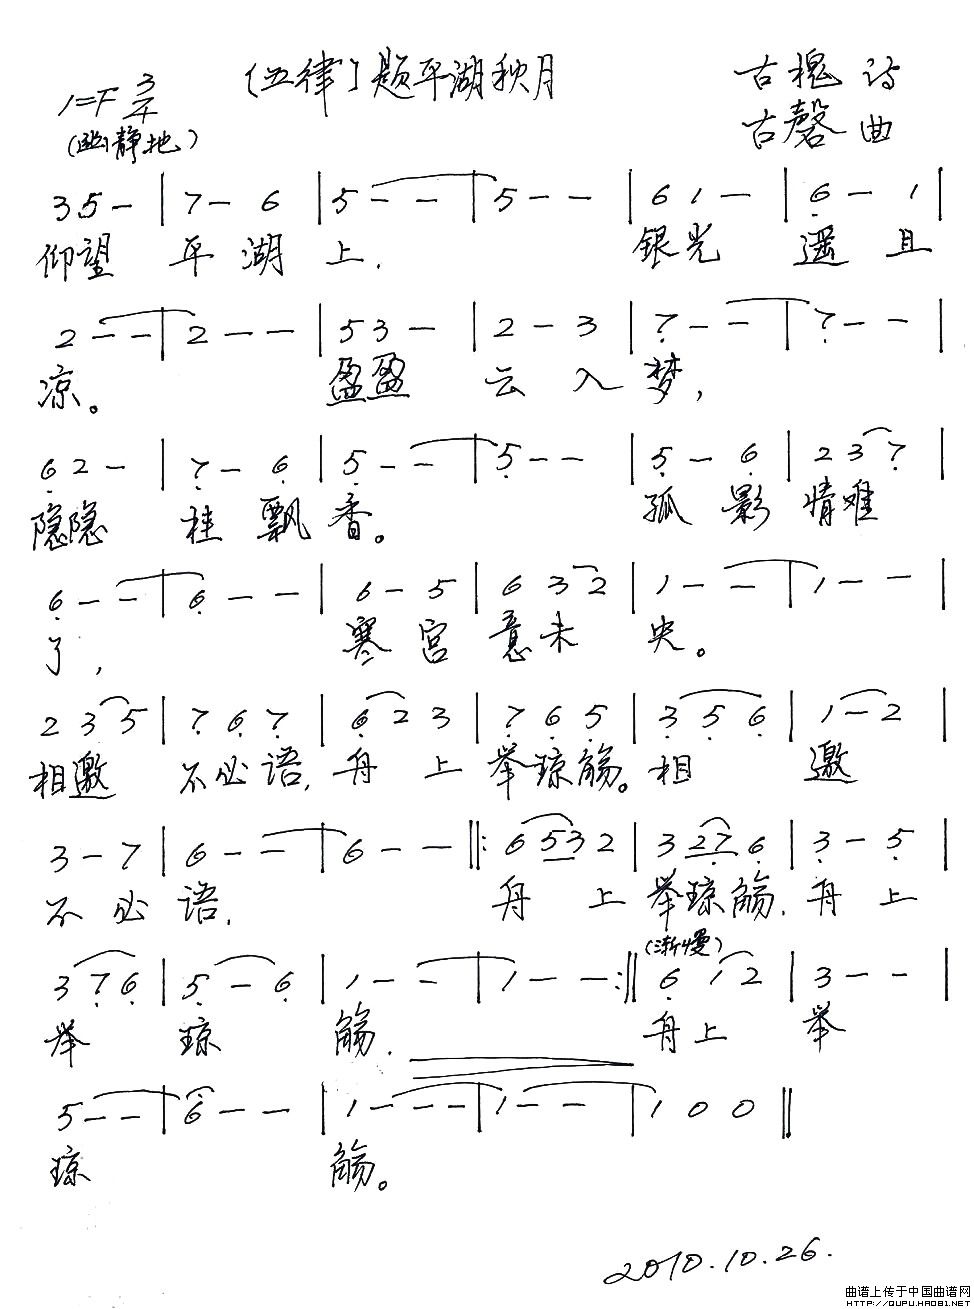 [五律]题平湖秋月
1=F 3/4
(幽静地)
古槐 诗
古磬 曲
3 5 - | 7 - 6 | 5 - - | 5 - - | 6 1 - | 6 - 1 |
仰望 平 湖 上, 银光 遥 且
2 - - | 2 - - | 5 3 - | 2 - 3 | 7 - - | 7 - - |
凉。 盈盈 云 入 梦,
6 2 - | 7 - 6 | 5 - - | 5 - - | 5 - 6 | 2 3 7 |
隐隐 桂 飘 香。 孤 影 情难
6 - - | 6 - - | 6 - 5 | 6 3 2 | 1 - - | 1 - - |
了, 寒 宫 意未 央。
2 3 5 | 7 6 7 | 6 2 3 | 7 6 5 | 3 5 6 | 1 - 2 |
相邀 不必语, 舟 上 举琼觞。相 邀
3 - 7 | 6 - - | 6 - - ‖: 6 5 3 2 | 3 2 7 6 | 3 - 5 |
不 必 语, 舟 上 举琼觞, 舟 上
(渐慢)
3 7 6 | 5 - 6 | 1 - - | 1 - - :‖ 6 1 2 | 3 - - |
举 琼 觞, 舟上 举
5 - - | 6 - - | 1 - - - | 1 - - | 1 0 0 ‖
琼 觞。
2010.10.26.
曲谱上传于中国曲谱网
HTTP://QUPU.HAO81.NET